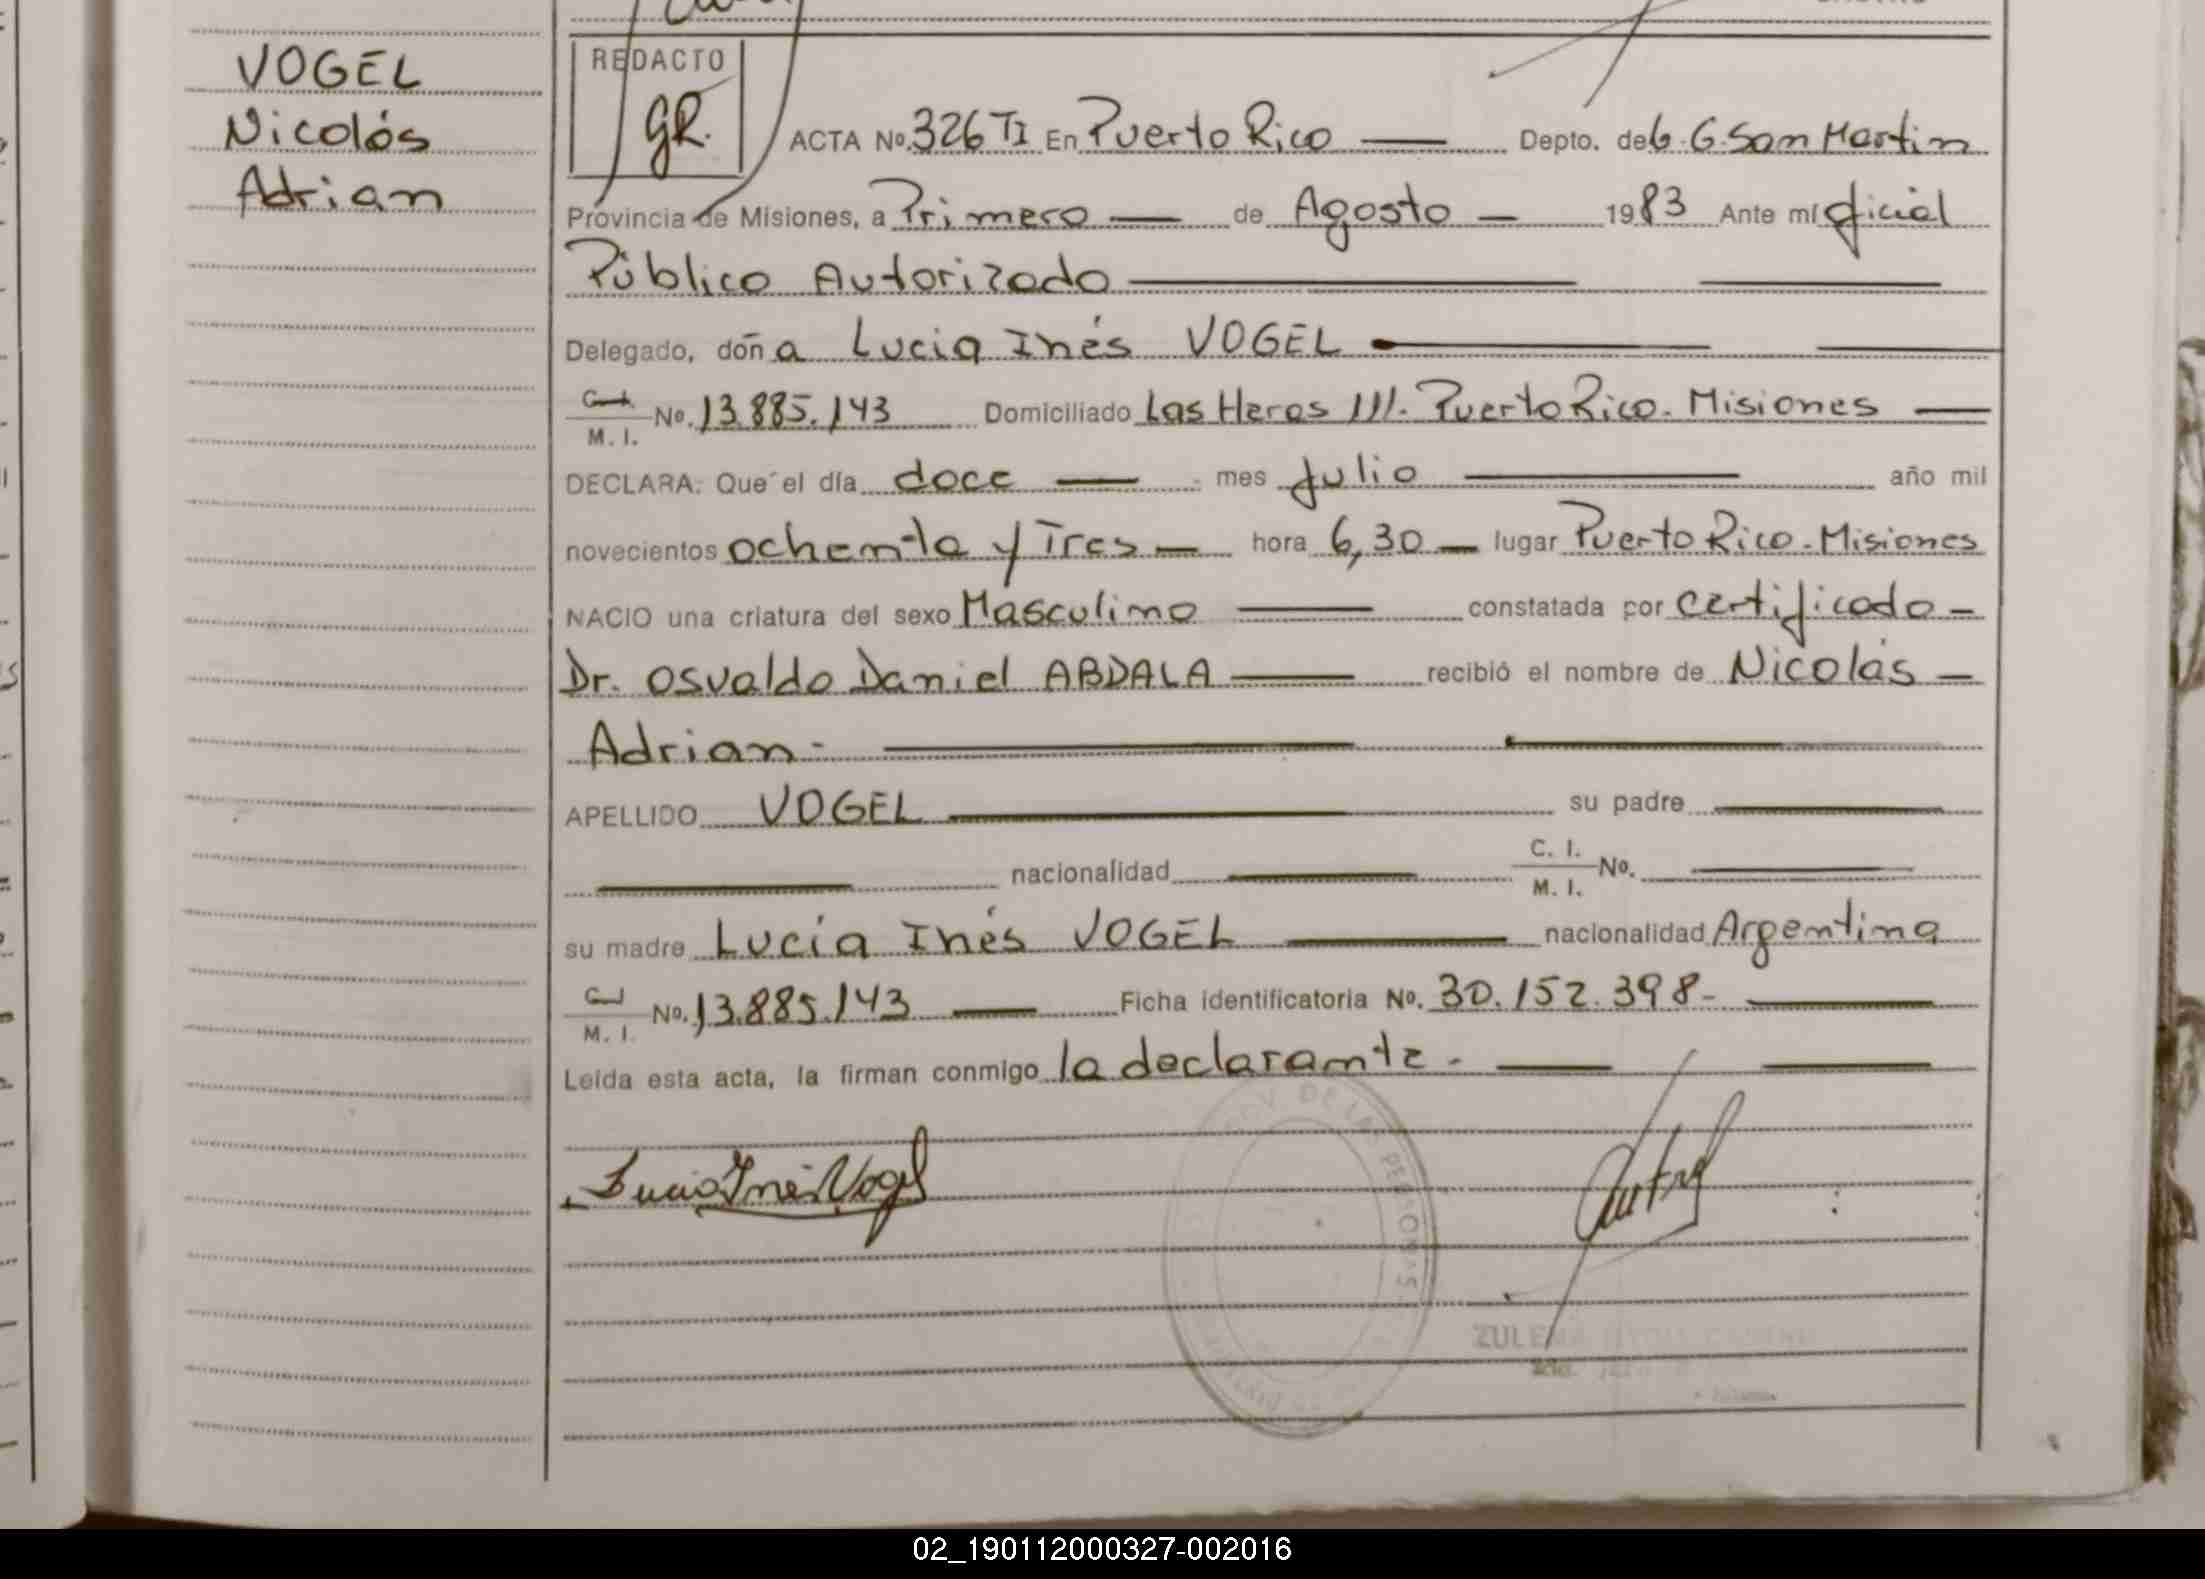 VOGEL
Nicolás
Adrian
REDACTO
GR.
ACTA No. 326 TI En Puerto Rico — Depto. de G. G. San Martin
Provincia de Misiones, a Primero — de Agosto — 1983 Ante mí oficial
Público Autorizado
Delegado, doña Lucia Inés VOGEL
C.I. M. I. No. 13.885.143 Domiciliado Las Heras 111. Puerto Rico. Misiones —
DECLARA: Que el día doce — mes Julio — año mil
novecientos ochenta y Tres — hora 6,30 — lugar Puerto Rico. Misiones
NACIO una criatura del sexo Masculino — constatada por certificado —
Dr. Osvaldo Daniel ABDALA — recibió el nombre de Nicolás —
Adrian -
APELLIDO VOGEL — su padre —
— nacionalidad — C. I. M. I. No. —
su madre Lucía Inés VOGEL — nacionalidad Argentina
C.I. M. I. No. 13.885.143 — Ficha identificatoria No. 30.152.398 - —
Leída esta acta, la firman conmigo la declarante. —
DE LAS PERSONAS
Lucia Inés Vogel
ZULEMA
02_190112000327-002016